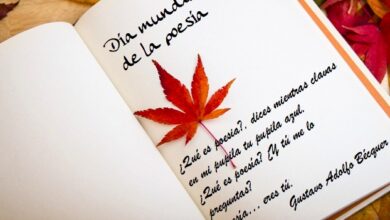 Día mundial
de la poesía
¿Qué es poesía?, dices mientras clavas
en mi pupila tu pupila azul.
¿Qué es poesía? ¿Y tú me lo
preguntas?
Poesía... eres tú.
Gustavo Adolfo Bécquer